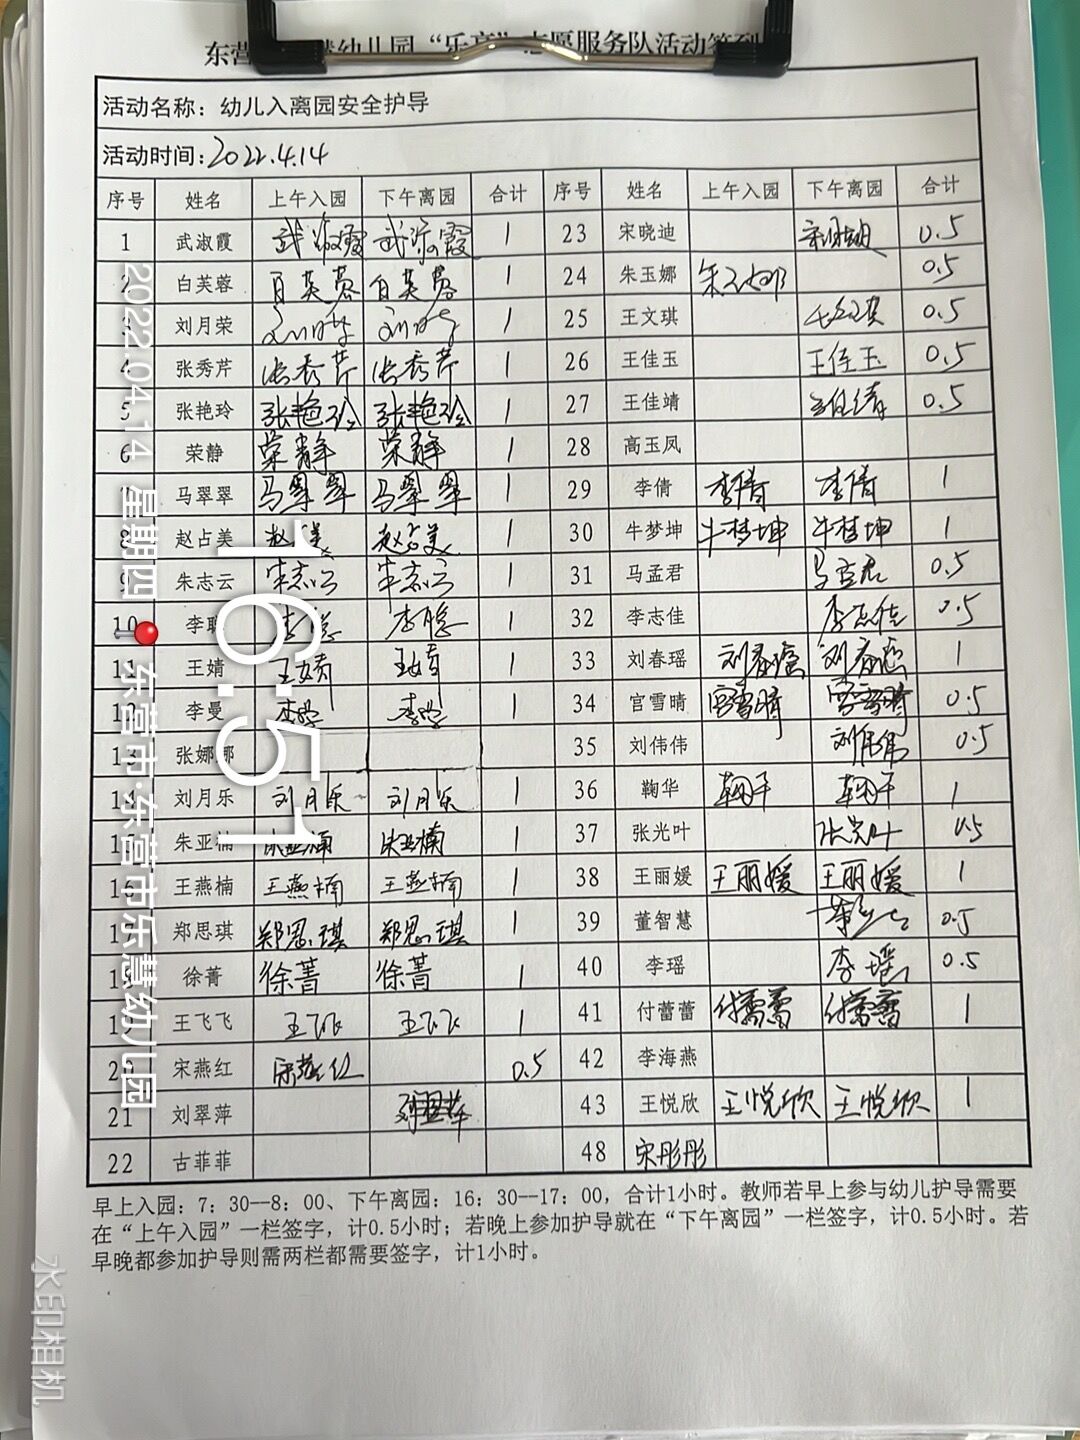 活动名称：幼儿入离园安全护导
活动时间：2022.4.14
序号 姓名 上午入园 下午离园 合计 序号 姓名 上午入园 下午离园 合计
1 武淑霞 武淑霞 武淑霞 1 23 宋晓迪 宋晓迪 0.5
2 白芙蓉 白芙蓉 白芙蓉 1 24 朱玉娜 朱玉娜 0.5
3 刘月荣 刘月荣 刘月荣 1 25 王文琪 王文琪 0.5
4 张秀芹 张秀芹 张秀芹 1 26 王佳玉 王佳玉 0.5
5 张艳玲 张艳玲 张艳玲 1 27 王佳靖 王佳靖 0.5
6 荣静 荣静 荣静 1 28 高玉凤
马翠翠 马翠翠 马翠翠 1 29 李倩 李倩 李倩 1
8 赵占美 赵占美 赵占美 1 30 牛梦坤 牛梦坤 牛梦坤 1
9 朱志云 朱志云 朱志云 1 31 马孟君 马孟君 0.5
10 李聪 李聪 李聪 1 32 李志佳 李志佳 0.5
11 王婧 王婧 王婧 1 33 刘春瑶 刘春瑶 刘春瑶 1
12 李曼 李曼 李曼 1 34 宫雪晴 宫雪晴 宫雪晴 0.5
13 张娜娜 35 刘伟伟 刘伟伟 0.5
14 刘月乐 刘月乐 刘月乐 1 36 鞠华 鞠华 鞠华 1
15 朱亚楠 朱亚楠 朱亚楠 1 37 张光叶 张光叶 0.5
16 王燕楠 王燕楠 王燕楠 1 38 王丽媛 王丽媛 王丽媛 1
17 郑思琪 郑思琪 郑思琪 1 39 董智慧 0.5
18 徐菁 徐菁 徐菁 1 40 李瑶 李瑶 0.5
19 王飞飞 王飞飞 王飞飞 1 41 付蕾蕾 付蕾蕾 付蕾蕾 1
20 宋燕红 宋燕红 0.5 42 李海燕
21 刘翠萍 刘翠萍 43 王悦欣 王悦欣 王悦欣 1
22 古菲菲 48 宋彤彤
早上入园：7：30--8：00、下午离园：16：30--17：00，合计1小时。教师若早上参与幼儿护导需要
在“上午入园”一栏签字，计0.5小时；若晚上参加护导就在“下午离园”一栏签字，计0.5小时。若
早晚都参加护导则需两栏都需要签字，计1小时。
16:51
2022.04.14 星期四
东营市·东营市乐慧幼儿园
水印相机